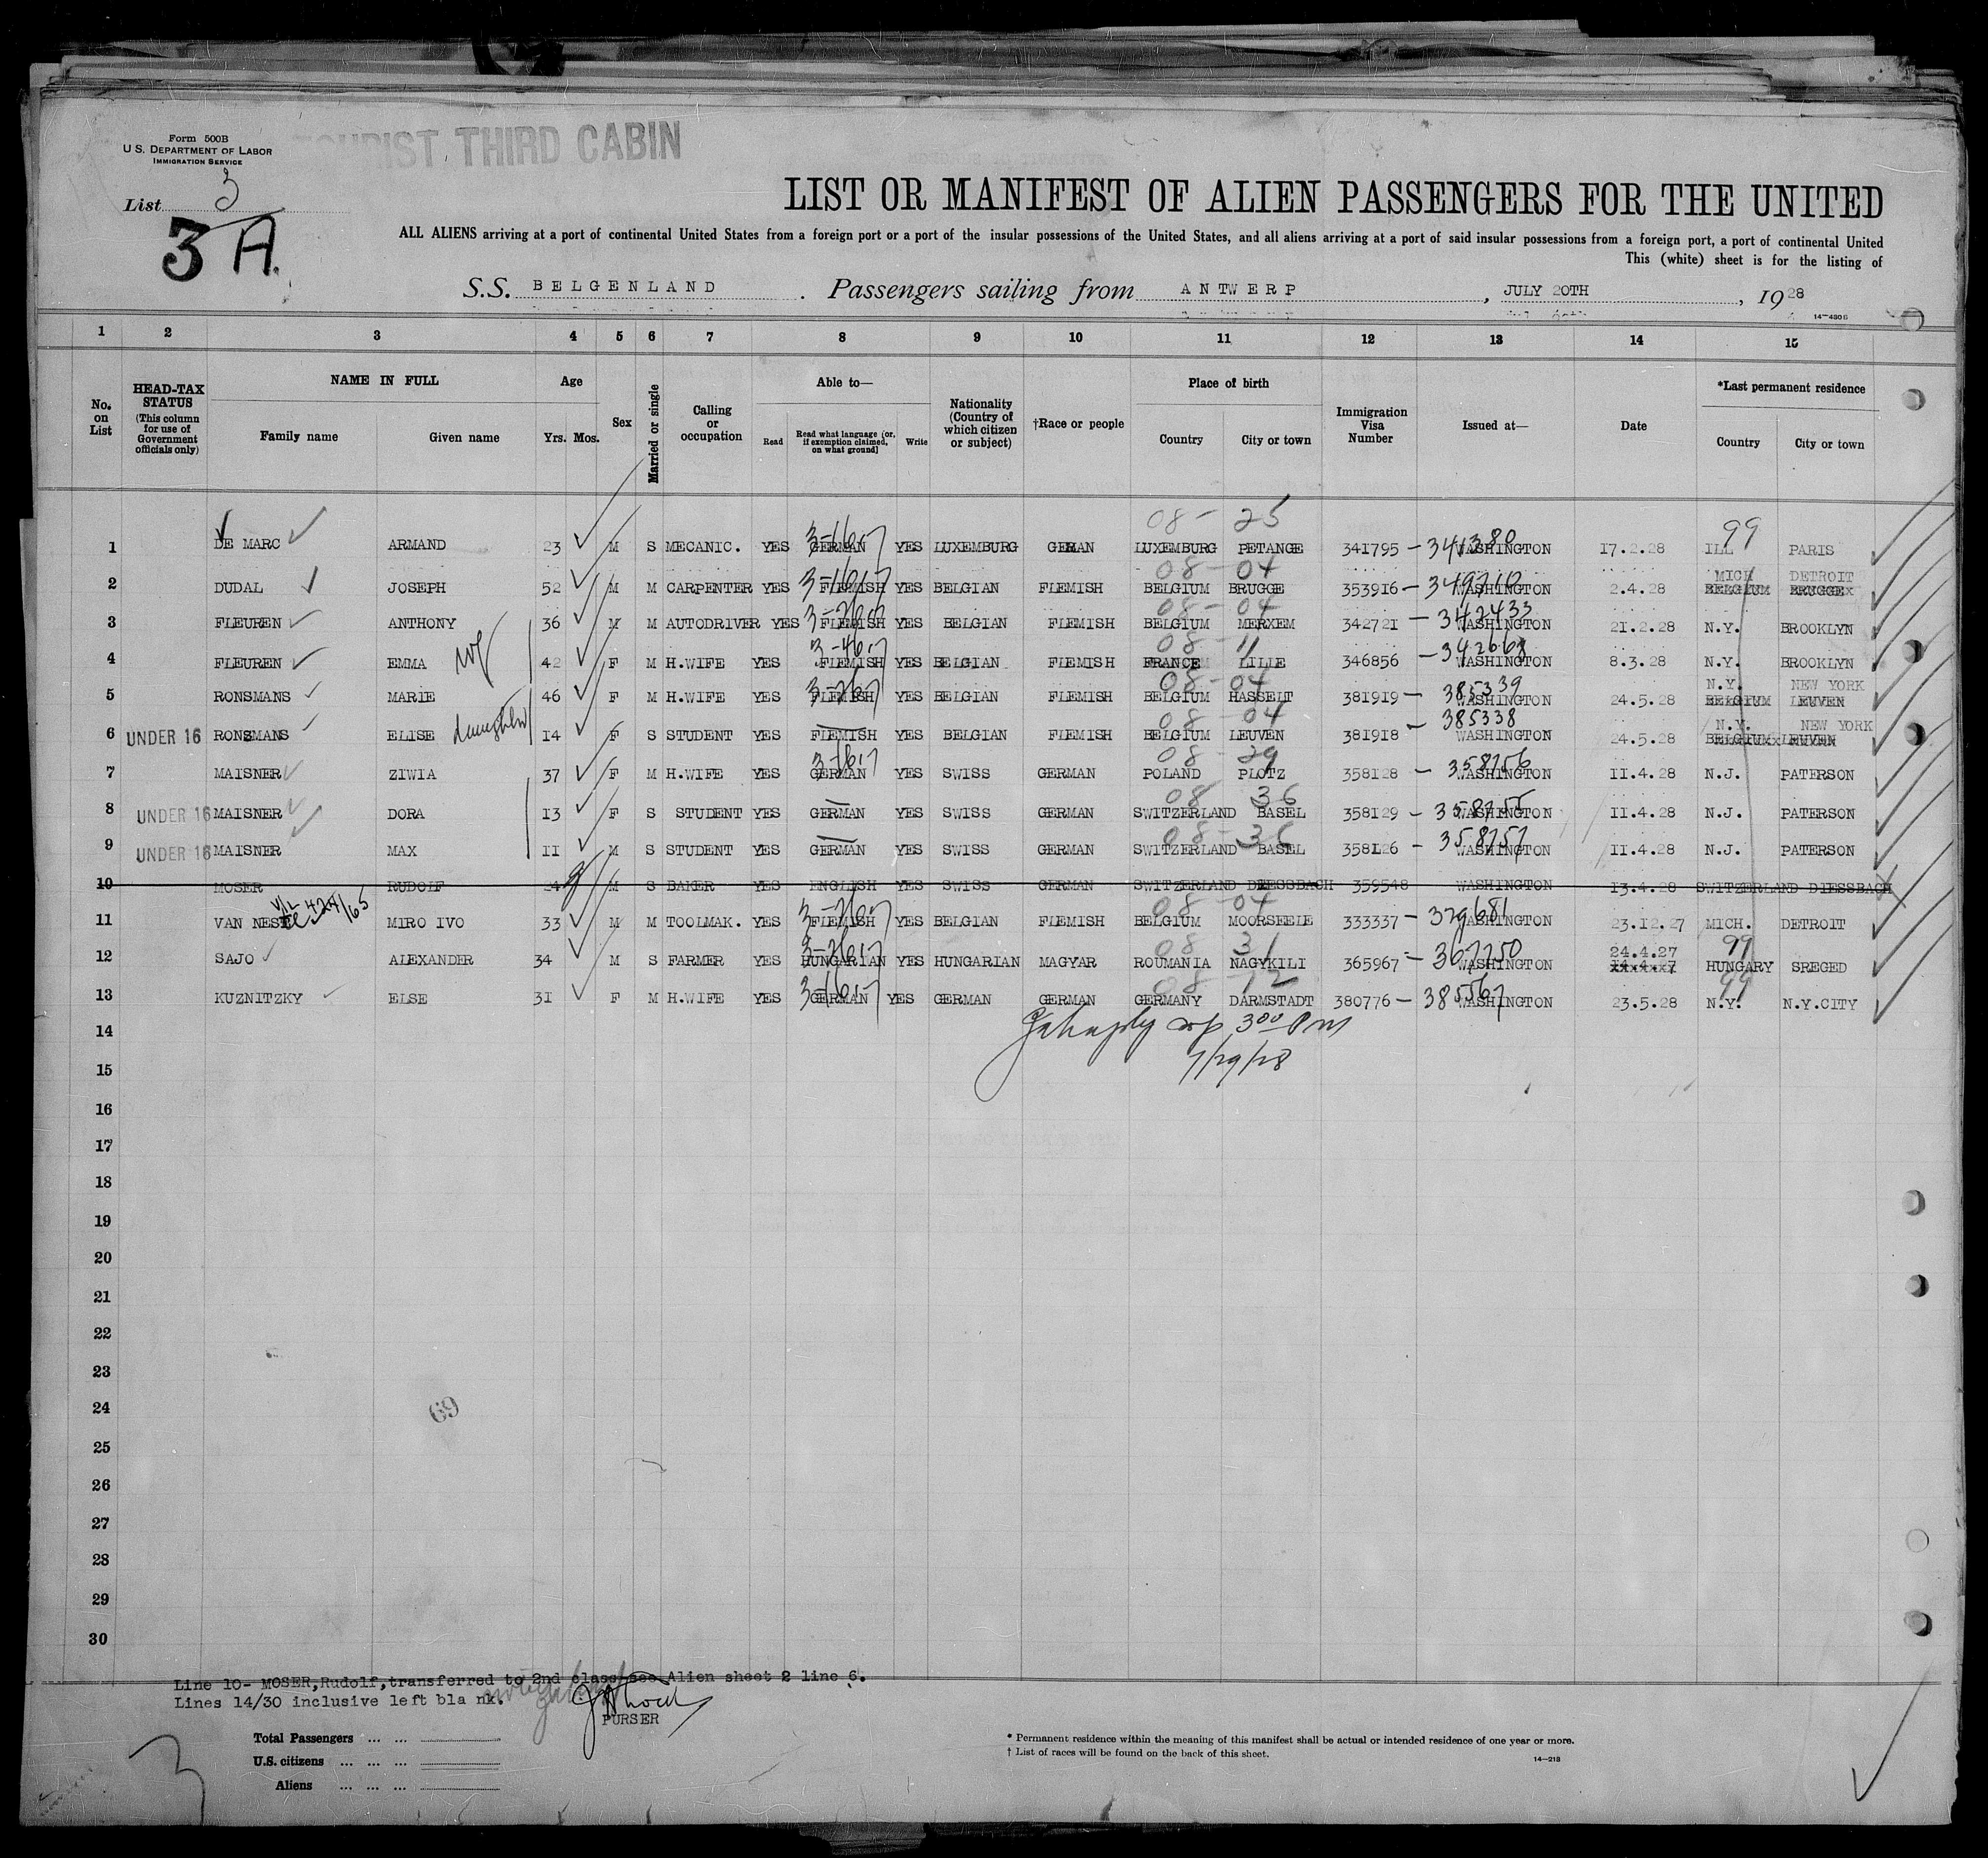 Form 500B
U.S. DEPARTMENT OF LABOR
IMMIGRATION SERVICE
TOURIST THIRD CABIN
List 3
3 A.
LIST OR MANIFEST OF ALIEN PASSENGERS FOR THE UNITED
ALL ALIENS arriving at a port of continental United States from a foreign port or a port of the insular possessions of the United States, and all aliens arriving at a port of said insular possessions from a foreign port, a port of continental United
This (white) sheet is for the listing of
S.S. BELGENLAND. Passengers sailing from ANTWERP, JULY 20TH, 1928
14-480B
1 2 3 4 5 6 7 8 9 10 11 12 13 14 15
No. on List HEAD-TAX STATUS (This column for use of Government officials only) NAME IN FULL Family name Given name Age Yrs. Mos. Sex Married or single Calling or occupation Able to— Read Read what language [or, if exemption claimed, on what ground] Write Nationality (Country of which citizen or subject) †Race or people Place of birth Country City or town Immigration Visa Number Issued at— Date *Last permanent residence Country City or town
08 - 25 99
1 DE MARC ARMAND 23 M S MECANIC. YES GERMAN YES LUXEMBURG GERMAN LUXEMBURG PETANGE 341795 - 341380 WASHINGTON 17.2.28 ILL PARIS
08 - 04 MICH DETROIT
2 DUDAL JOSEPH 52 M M CARPENTER YES FLEMISH YES BELGIAN FLEMISH BELGIUM BRUGGE 353916 - WASHINGTON 2.4.28 BELGIUM BRUGGE
08 - 04
3 FLEUREN ANTHONY 36 M M AUTODRIVER YES FLEMISH YES BELGIAN FLEMISH BELGIUM MERXEM 342721 - 342433 WASHINGTON 21.2.28 N.Y. BROOKLYN
08 - 11
4 FLEUREN EMMA wf 42 F M H.WIFE YES FLEMISH YES BELGIAN FLEMISH FRANCE LILLE 346856 - 342668 WASHINGTON 8.3.28 N.Y. BROOKLYN
08 - 04 N.Y. NEW YORK
5 RONSMANS MARIE 46 F M H.WIFE YES FLEMISH YES BELGIAN FLEMISH BELGIUM HASSELT 381919 - 385339 WASHINGTON 24.5.28 BELGIUM LEUVEN
08 - 04 N.Y. NEW YORK
6 UNDER 16 RONSMANS ELISE daughter 14 F S STUDENT YES FLEMISH YES BELGIAN FLEMISH BELGIUM LEUVEN 381918 - 385338 WASHINGTON 24.5.28 BELGIUM LEUVEN
08 - 29
7 MAISNER ZIWIA 37 F M H.WIFE YES GERMAN YES SWISS GERMAN POLAND PLOTZ 358128 - 358756 WASHINGTON 11.4.28 N.J. PATERSON
08 36
8 UNDER 16 MAISNER DORA 13 F S STUDENT YES GERMAN YES SWISS GERMAN SWITZERLAND BASEL 358129 - 358755 WASHINGTON 11.4.28 N.J. PATERSON
08 - 36
9 UNDER 16 MAISNER MAX 11 M S STUDENT YES GERMAN YES SWISS GERMAN SWITZERLAND BASEL 358126 - 358757 WASHINGTON 11.4.28 N.J. PATERSON
10 MOSER RUDOLF 24 M S BAKER YES ENGLISH YES SWISS GERMAN SWITZERLAND DIESSBACH 359548 WASHINGTON 13.4.28 SWITZERLAND DIESSBACH
08 - 04
11 VAN NESTE MIRO IVO 33 M M TOOLMAK. YES FLEMISH YES BELGIAN FLEMISH BELGIUM MOORSEELE 333337 - 379681 WASHINGTON 23.12.27 MICH. DETROIT
08 31 24.4.27 99
12 SAJO ALEXANDER 34 M S FARMER YES HUNGARIAN YES HUNGARIAN MAGYAR ROUMANIA NAGYKILI 365967 - 367750 WASHINGTON HUNGARY SREGED
08 - 12 99
13 KUZNITZKY ELSE 31 F M H.WIFE YES GERMAN YES GERMAN GERMAN GERMANY DARMSTADT 380776 - 385567 WASHINGTON 23.5.28 N.Y. N.Y.CITY
14 3 00 Pm
7/29/28
15
16
17
18
19
20
21
22
23
24 69
25
26
27
28
29
30
Line 10- MOSER,Rudolf,transferred to 2nd class see Alien sheet 2 line 6.
Lines 14/30 inclusive left bla nk.
PURSER
Total Passengers
U.S. citizens
Aliens
* Permanent residence within the meaning of this manifest shall be actual or intended residence of one year or more.
† List of races will be found on the back of this sheet.
14-213
3